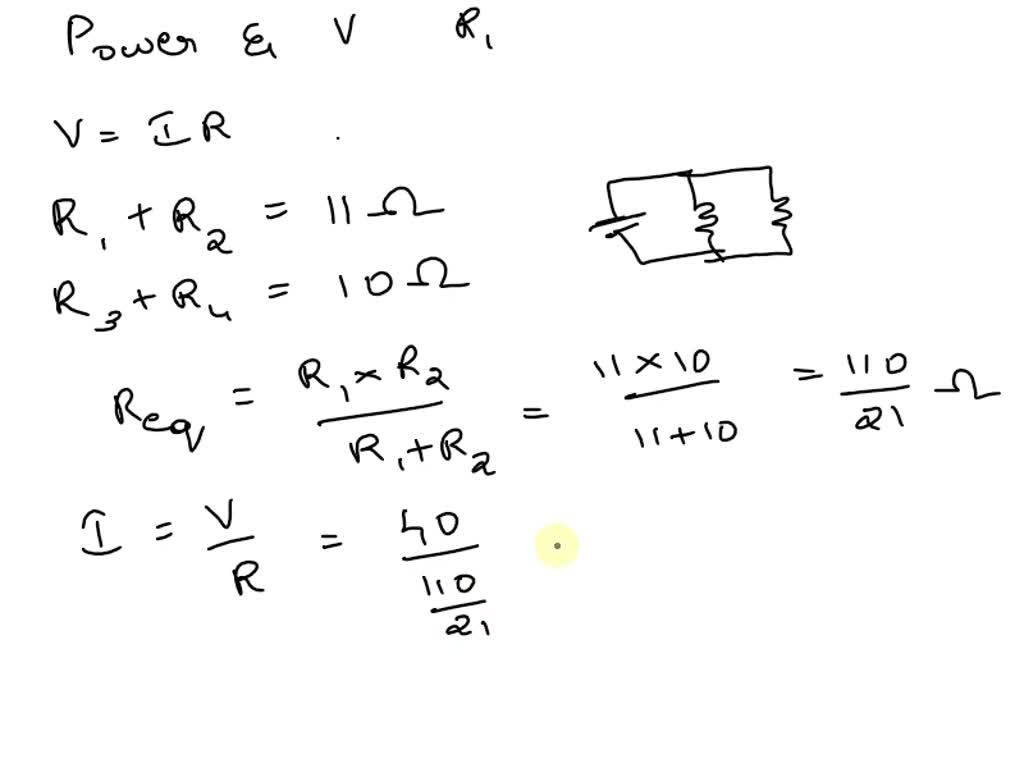 Power & V R₁
V = IR
R₁ + R₂ = 11 Ω
R₃ + R₄ = 10 Ω
Req = R₁ × R₂ / R₁ + R₂ = 11 × 10 / 11 + 10 = 110 / 21 Ω
I = V / R = 40 / 110 / 21